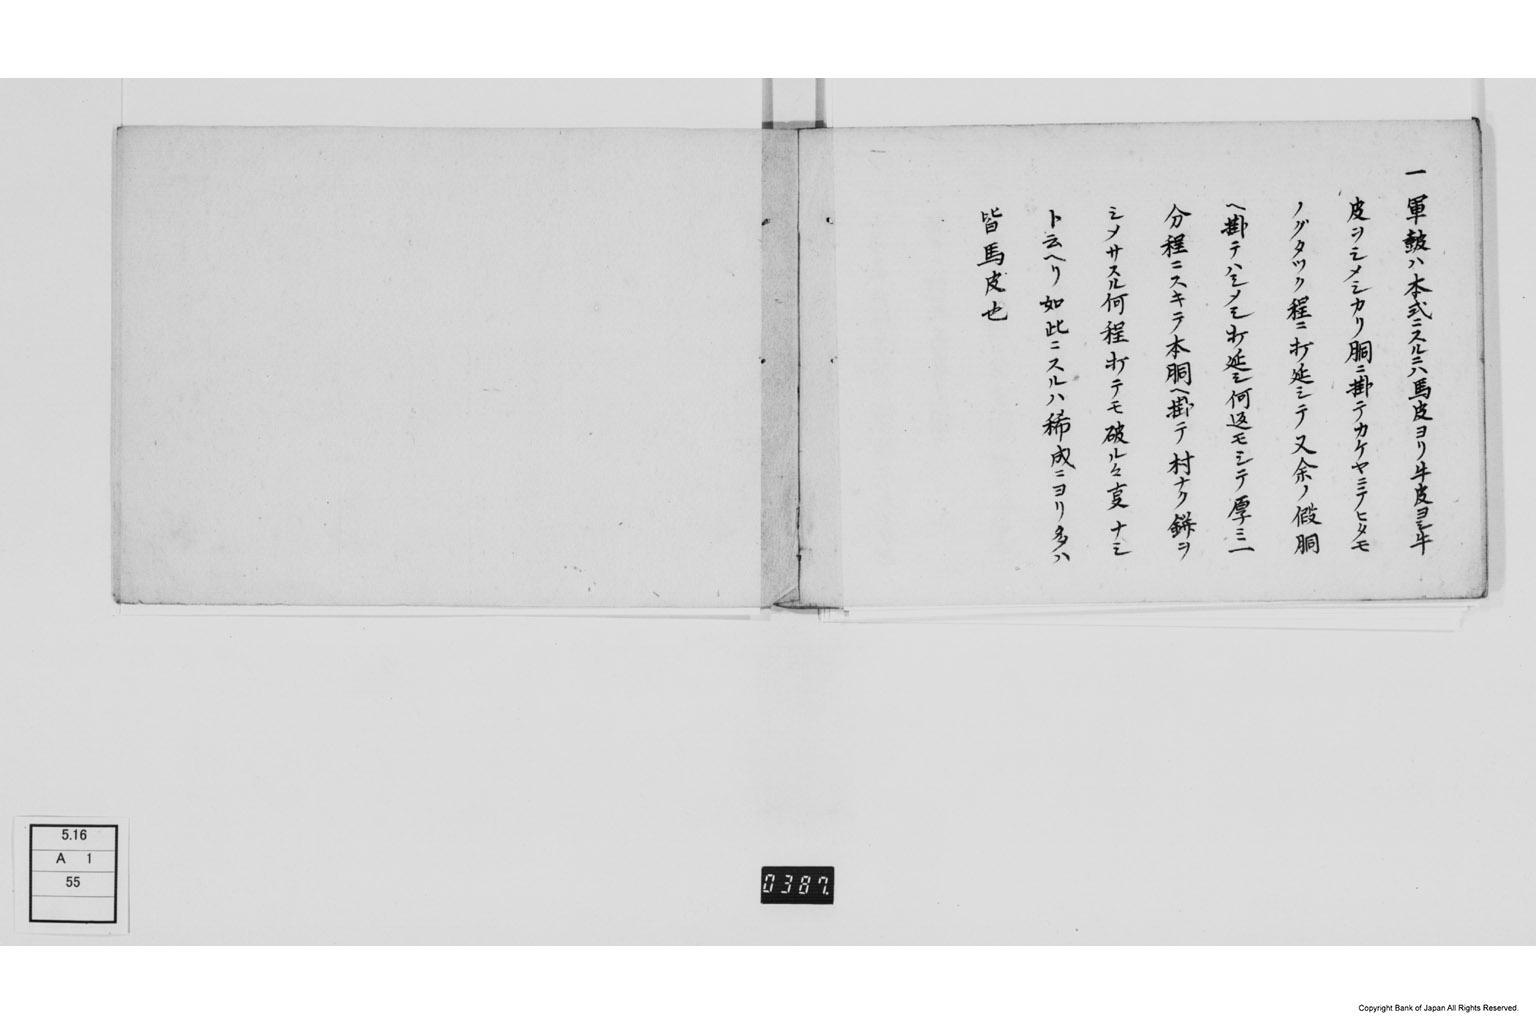 一 軍皷ハ本式ニスルニハ馬皮ヨリ牛皮ヨシ牛
皮ヲシメシカリ胴ニ掛テカケヤニテヒタモ
ノグタツク程ニ打延シテ又余ノ假胴
ヘ掛テハシメシ打延シ何返モシテ厚ミ一
分程ニスキテ本胴ヘ掛テ村ナク餅ヲ
シメサスル何程打テモ破ルヽ亥ナシ
ト云ヘリ如此ニスルハ稀成ニヨリ多ハ
皆馬皮也
5.16
A 1
55
0387
Copyright Bank of Japan All Rights Reserved.